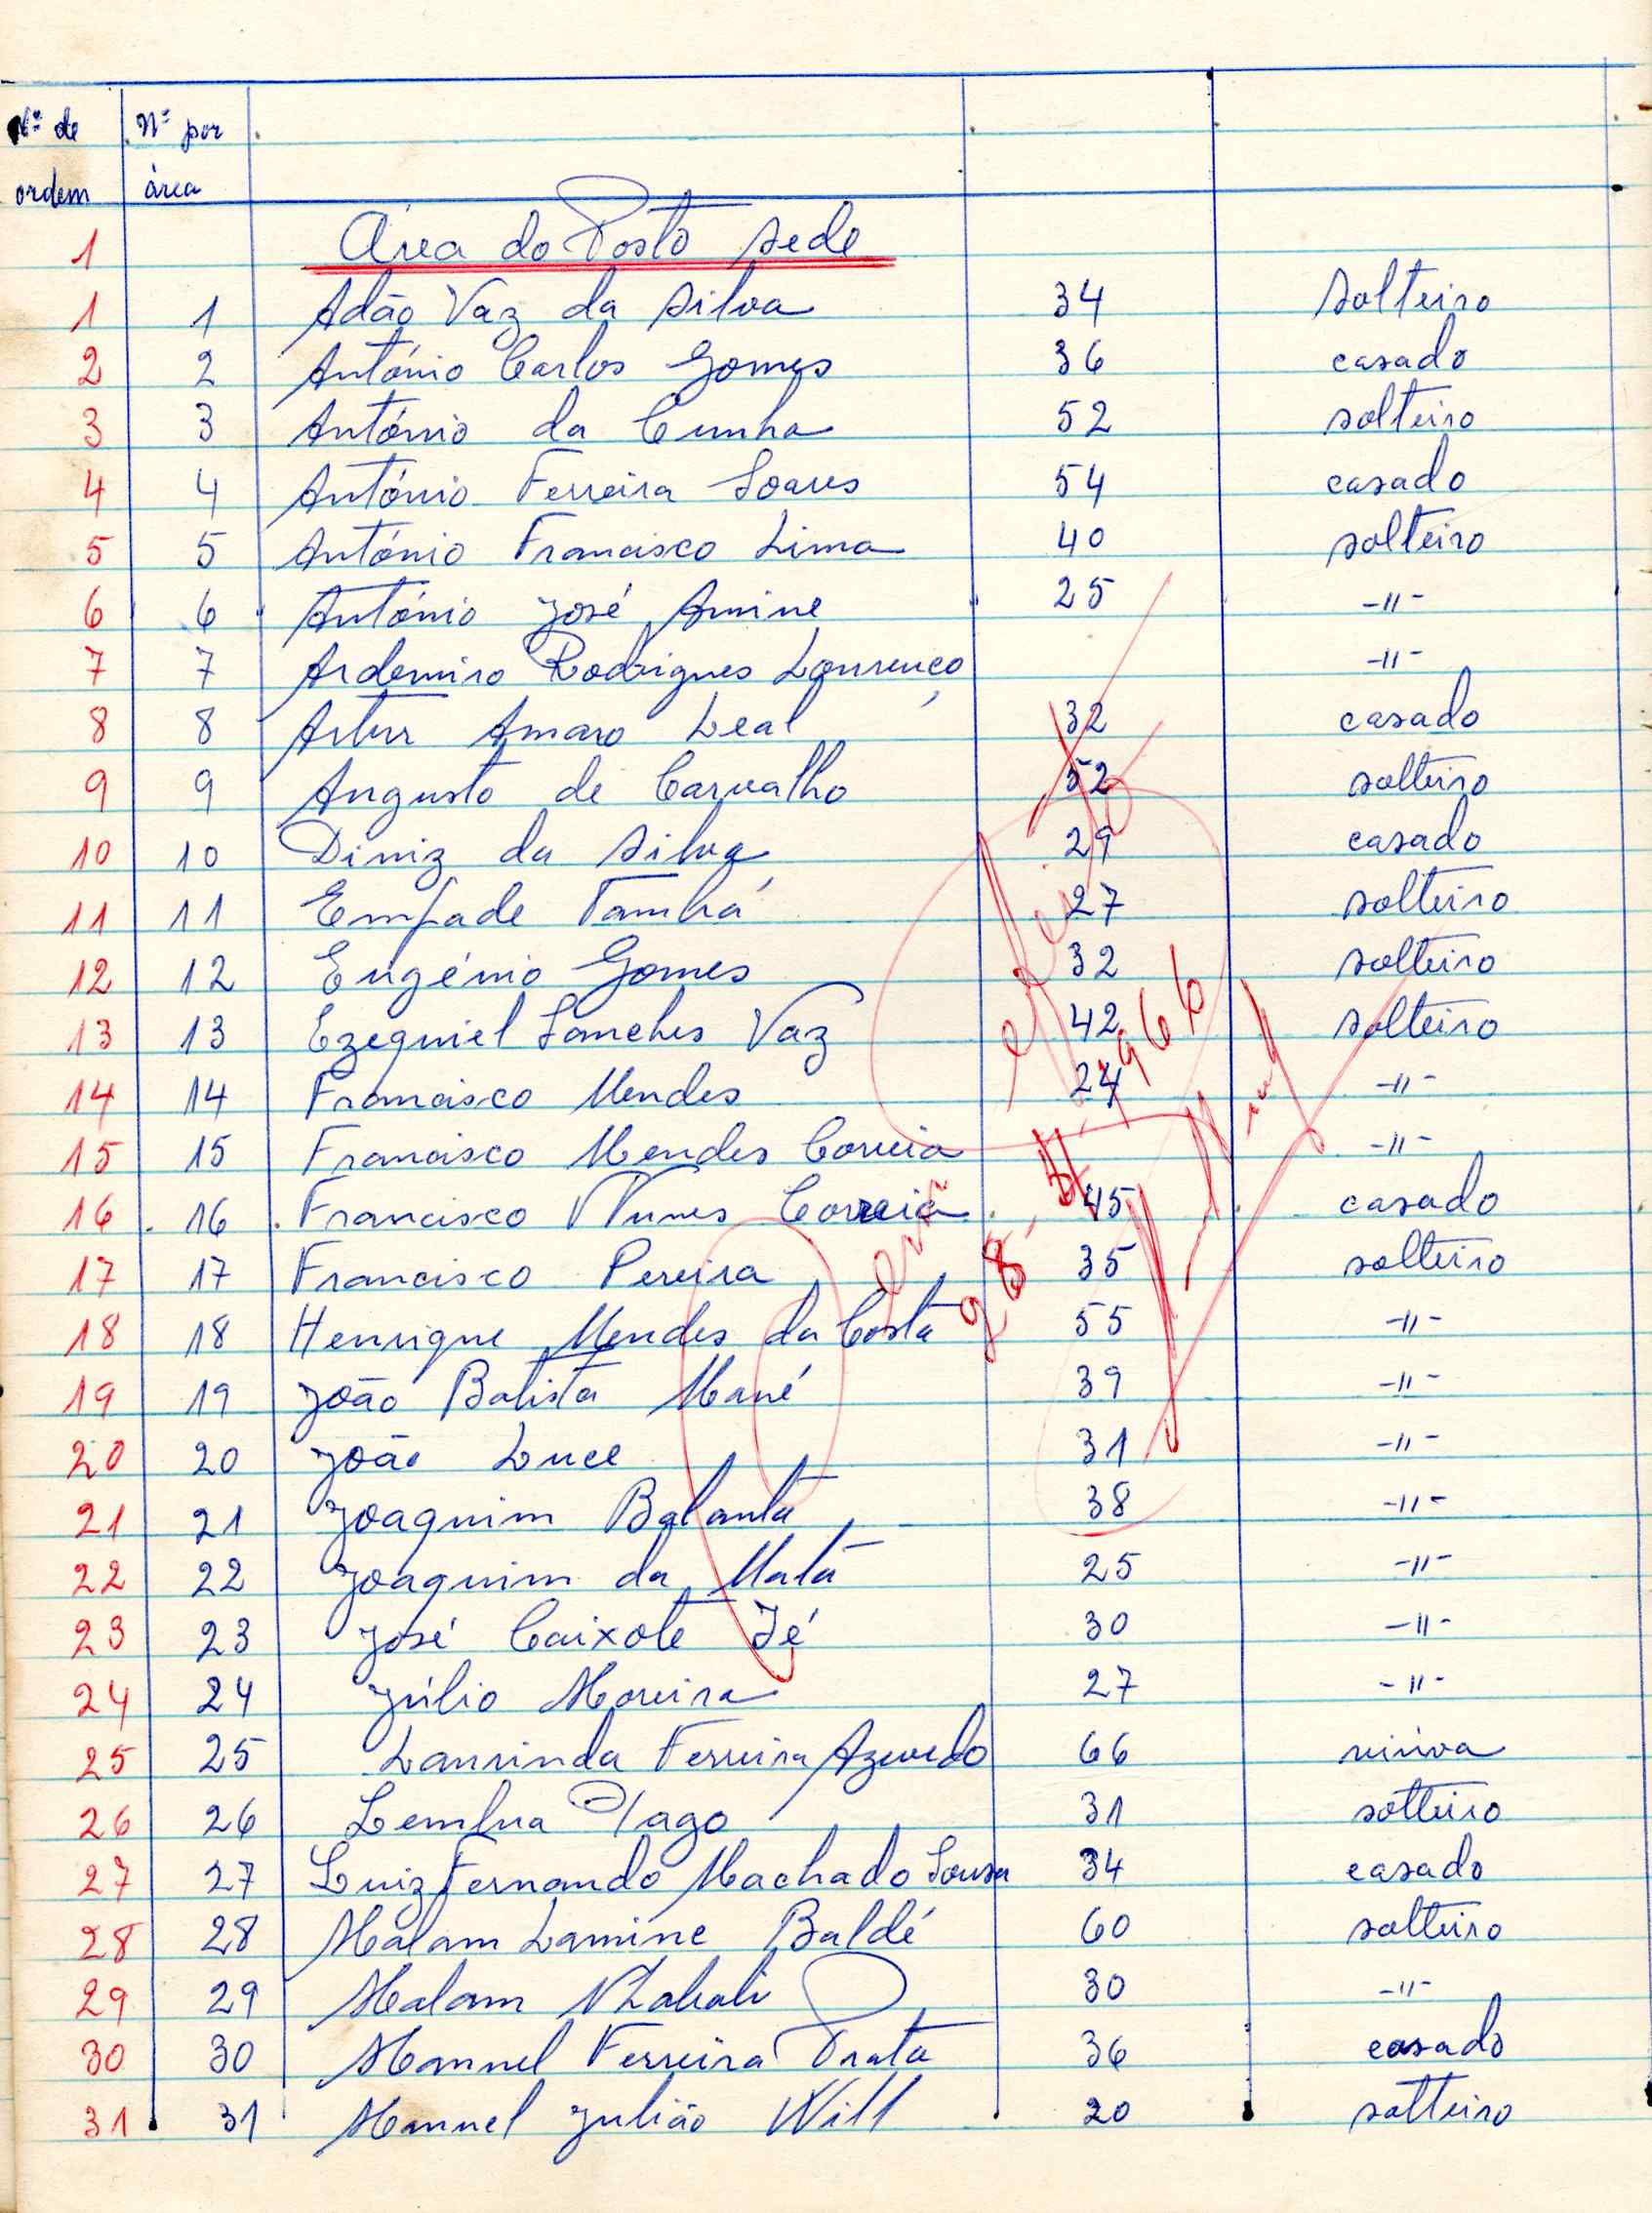 Nº de Nº por
ordem área
1 Área do Posto sede
1 1 Adão Vaz da Silva 34 solteiro
2 2 António Carlos Gomes 36 casado
3 3 António da Cunha 52 solteiro
4 4 António Ferreira Soares 54 casado
5 5 António Francisco Lima 40 solteiro
6 6 António José Amine 25 -"-
7 7 Ardemiro Rodrigues Lourenço -"-
8 8 Artur Amaro Leal 32 casado
9 9 Augusto de Carvalho 52 solteiro
10 10 Diniz da Silva 29 casado
11 11 Emfade Tambá 27 solteiro
12 12 Eugénio Gomes 32 solteiro
13 13 Ezequiel Sanches Vaz 42 solteiro
14 14 Francisco Mendes 24 -"-
15 15 Francisco Mendes Correia -"-
16 16 Francisco Nunes Correia 45 casado
17 17 Francisco Pereira 35 solteiro
18 18 Henrique Mendes da Costa 55 -"-
19 19 João Batista Mané 39 -"-
20 20 João Luce 31 -"-
21 21 Joaquim Balanta 38 -"-
22 22 Joaquim da Mata 25 -"-
23 23 José Caixote Jé 30 -"-
24 24 Júlio Moreira 27 -"-
25 25 Laurinda Ferreira Azevedo 66 viúva
26 26 Iago 31 solteiro
27 27 Luiz Fernando Machado Sousa 34 casado
28 28 Malam Lamine Baldé 60 solteiro
29 29 Malam 30 -"-
30 30 Manuel Ferreira Prata 36 casado
31 31 Manuel Julião Will 20 solteiro
1966